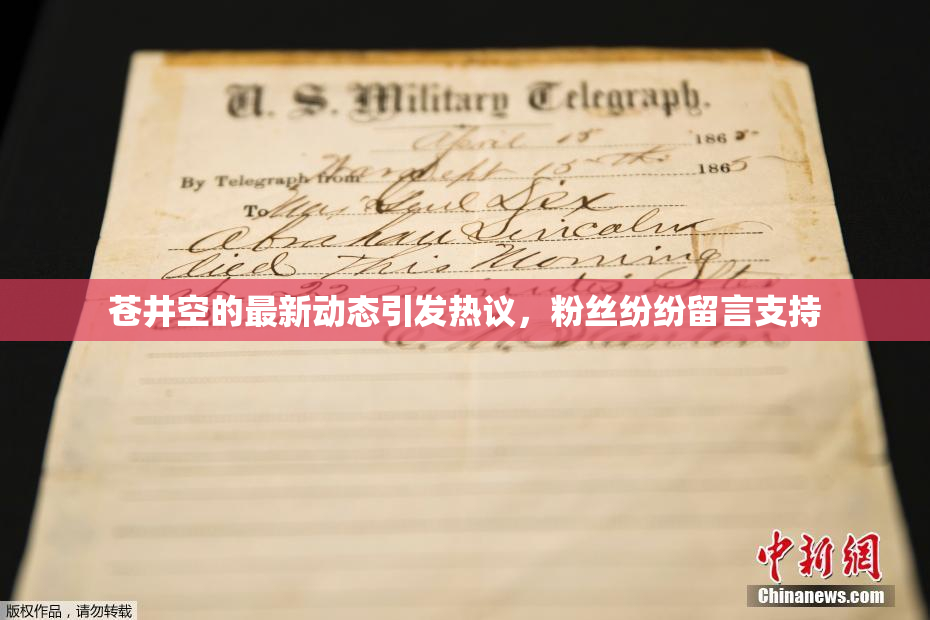 U. S. Military Telegraph.
April 15 1865
By Telegraph from War Dept 15th 1865
To Maj Genl Dix
Abraham Lincoln
died This Morning
22 minutes after
苍井空的最新动态引发热议，粉丝纷纷留言支持
E. M. Stanton
中新网
Chinanews.com
版权作品，请勿转载